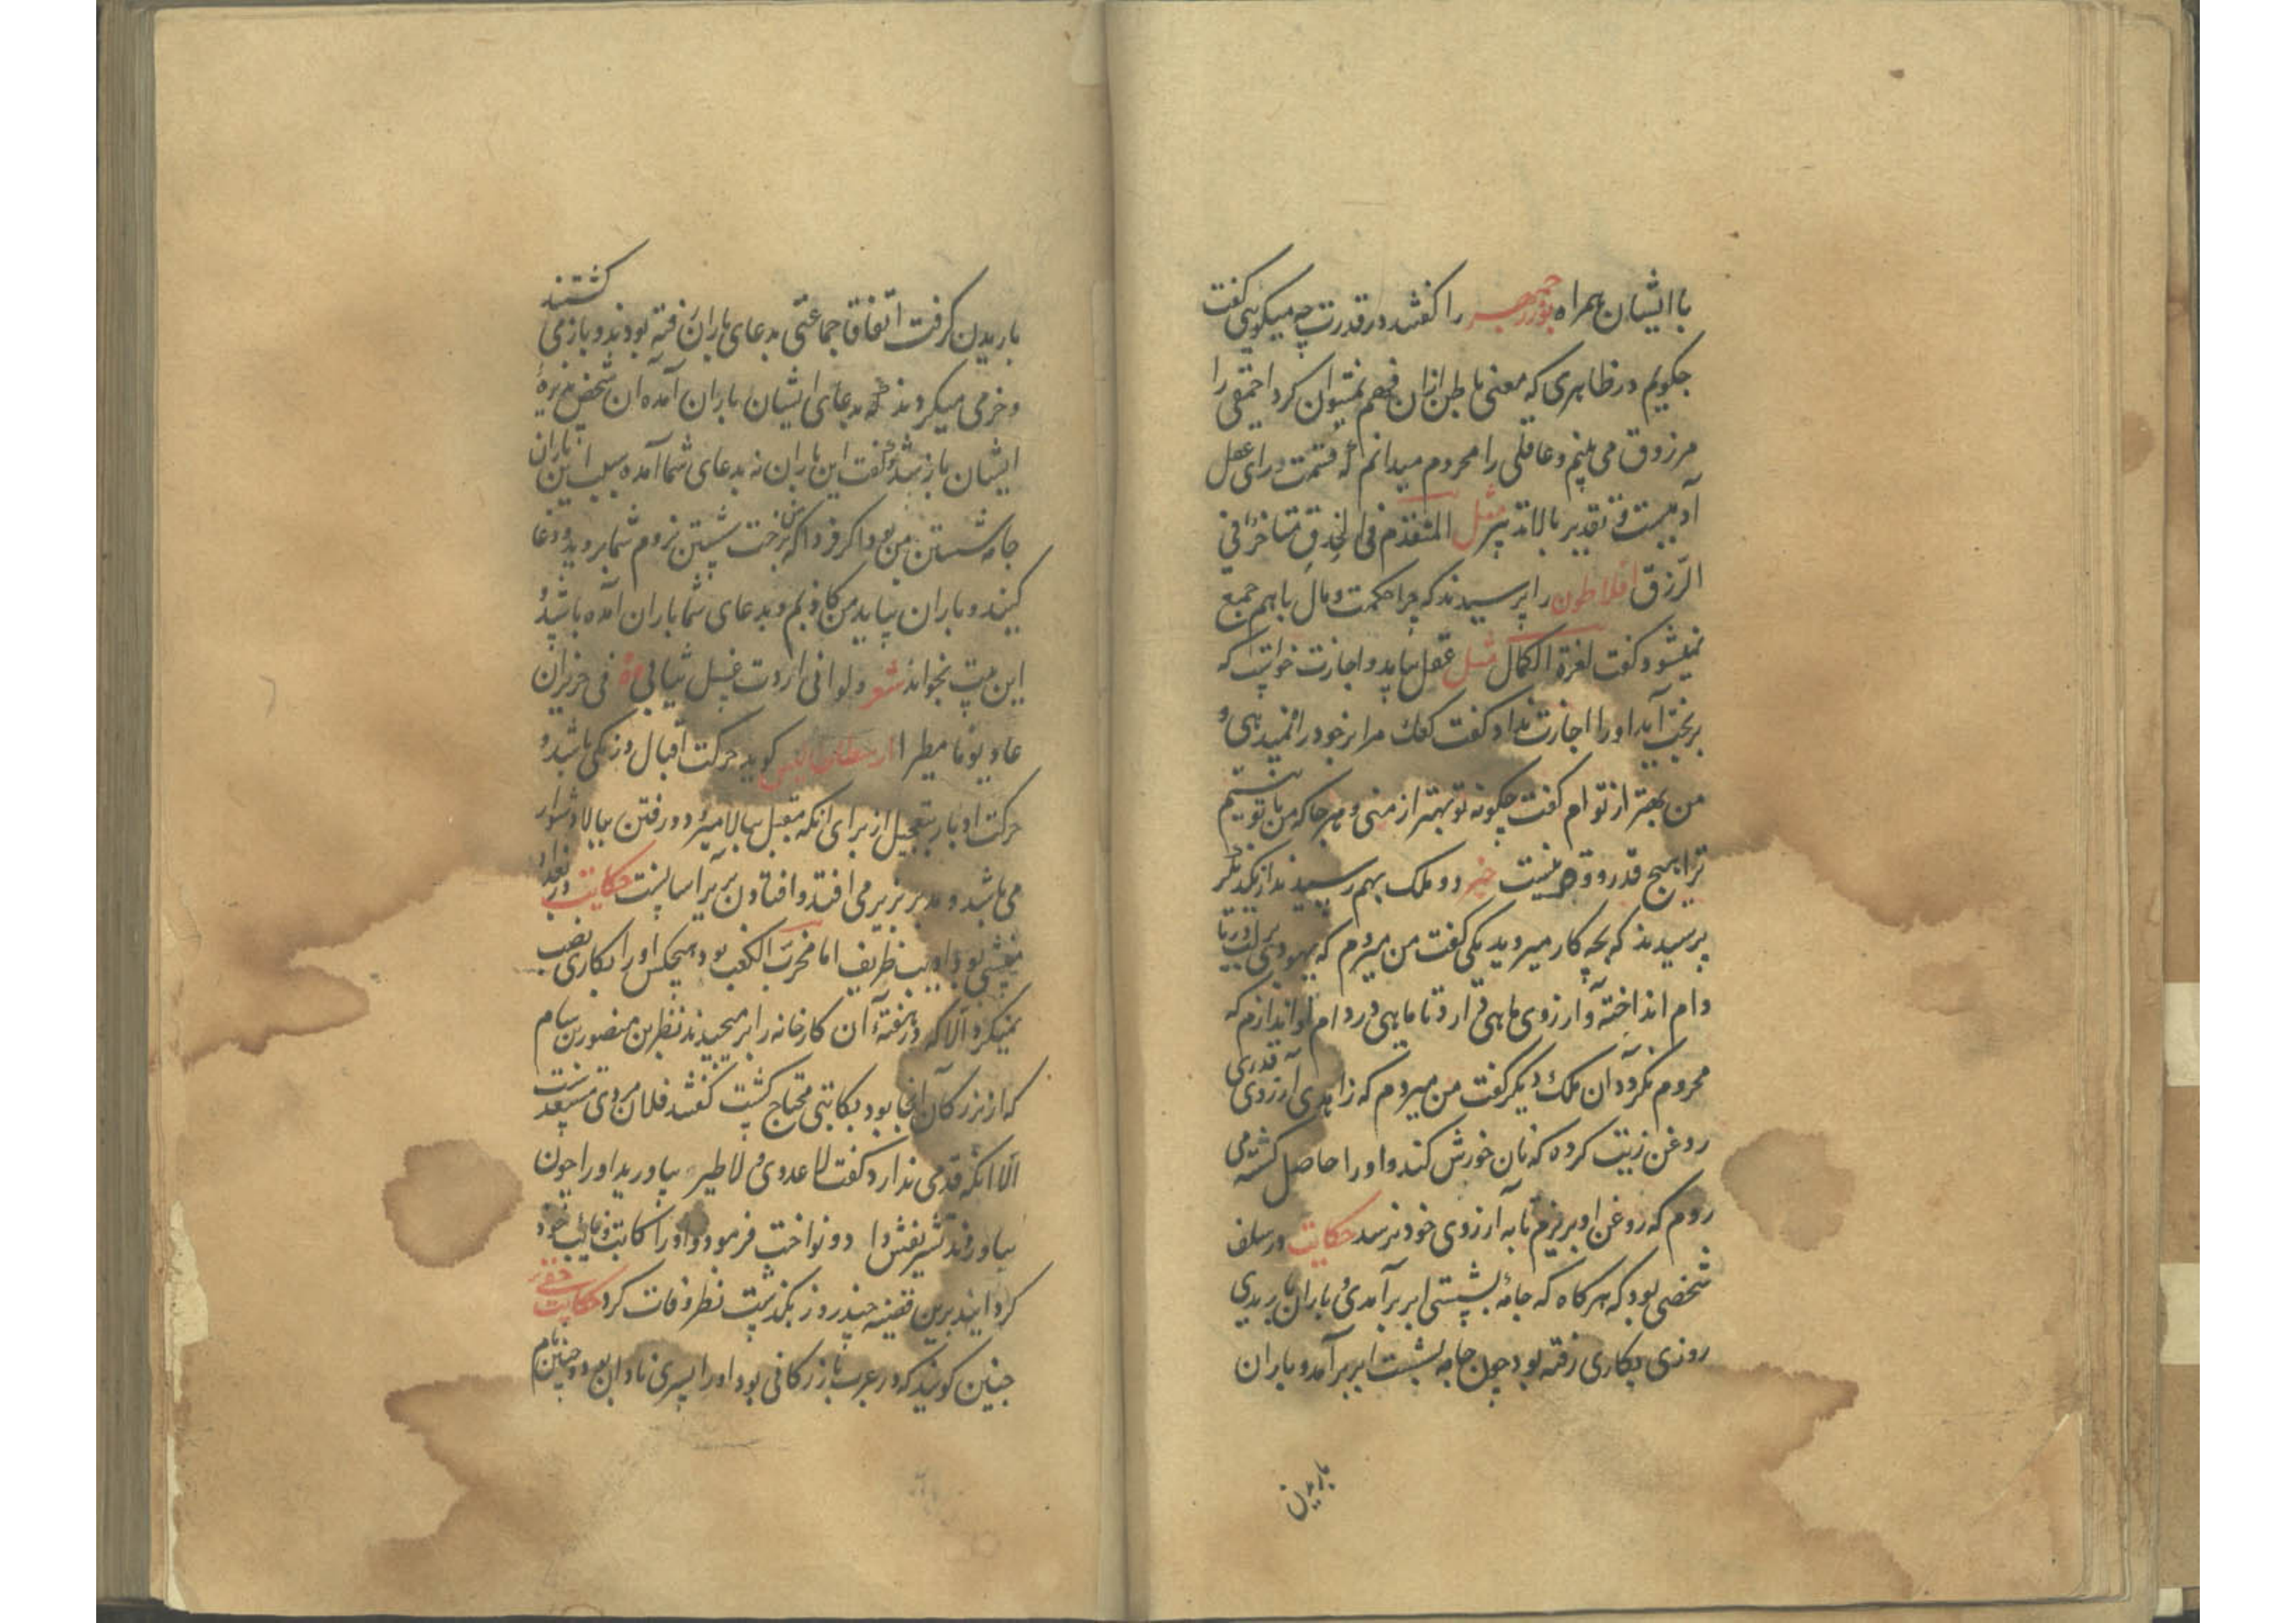 با ایشان همراه بوزرجمهر را گفتند در قدرت چه میکویی گفت
چکویم در ظاهری که معنی باطن ازان فهم نمیتوان کرد احمقی را
مرزوق می بینم و عاقلی را محروم میدانم که قسمت ورای عقل
آدمیست و تقدیر بالا تدبیر مثل المتقدم فی الحذق متاخر فی
الرزق افلاطون را پرسیدند که چرا حکمت و مال باهم جمع
نمیشود گفت لعزة الکمال مثل عقل بیاید و اجازت خواست که
بر بخت آید او را اجازت نداد گفت مرا بر خود راه نمیدهی و
من بهتر از تو ام گفت چکونه تو بهتر از منی و هر جا که من با تو نیستم
ترا هیچ قدر و وقع نیست خبر دو ملک بهم رسیدند از یکدیگر
پرسیدند که بچه کار میروید یکی گفت من میروم که یهودی بر لب دریا
دام انداخته و ارزوی ماهی دارد تا ماهی در دام او اندازم که
محروم نکردد آن ملک دیکر گفت من میروم که زاهدی آرزوی قدری
روغن زیت کرده که نان خورش کند و او را حاصل کشته می
روم که روغن او بریزم تا به آرزوی خود نرسد حکایت در سلف
شخصی بود که هر کاه که جامه بشستی ابر برآمدی و باران باریدی
روزی بکاری رفته بود چون جامه بشست ابر برآمد و باران
باریدن
باریدن کرفت اتفاقا جماعتی بدعای باران رفته بودند و باز می کشتند
و خرمی میکردند که بدعای ایشان باران آمده ان شخص
ایشان باز شد و گفت این باران نه بدعای شما آمده سبب این باران
جامه شستن من بود اکر فردا که من برخت شستن نروم شما بروید و دعا
کنید و باران بیاید من کاذبم و بدعای شما باران آمده باشد و
این بیت بخواند شعر ولو انی اردت غسل ثیابی مرة فی حزیران
عاد یوما مطیرا ارسطاطالیس کوید حرکت اقبال درنکی باشد و
حرکت ادبار بتعجیل از برای انکه مقبل ببالا میرود و رفتن ببالا دشوار
می باشد و مدبر بزیر می افتد و افتادن بزیر آسانست حکایت در بغداد
منشی بود ادیب ظریف اما مخرب الکعب بود هیچکس او را بکاری نصب
نمیکرد الا که در هفته آن کارخانه را برمیچیدند نظر بن منصور بن بسام
که از بزرکان انجا بود بکاتبی محتاج کشت گفتند فلان مردی مستعد است
الا انکه قدمی ندارد گفت لا عدوی و لا طیره بیاورید او را چون
بیاوردند تشریفش داد و نواخت فرمود و او را کاتب و نایب خود
کردانید برین قضیه چند روز بکذشت نظر وفات کرد حکایت
چنین کویند که در عرب بازرکانی بود او را پسری نادان بود چنین نام